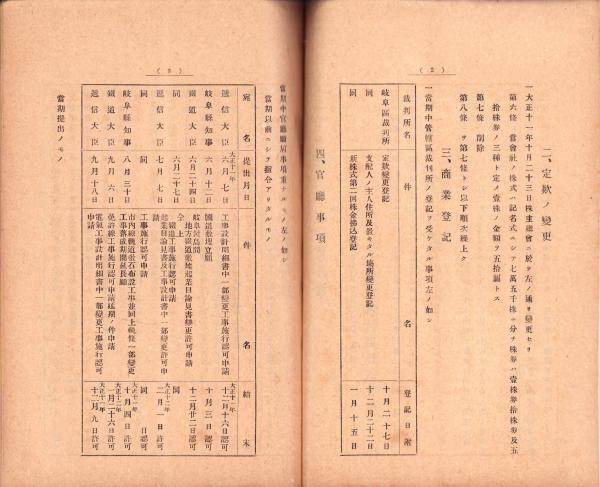 （２）
二、定欵ノ變更
一大正十一年十月二十三日株主總會ニ於テ左ノ通リ變更セリ
第六條 當會社ノ株式ハ記名式ニシテ七萬五千株ニ分チ株券ハ壹株券拾株券及五
拾株券ノ三種ト定メ壹株ノ金額ヲ五拾圓トス
第七條 削除
第八條 ヲ第七條トシ以下順次繰上ク
三、商業登記
一當期中管轄區裁判所ノ登記ヲ受ケタル事項左ノ如シ
裁判所名 件名 登記日附
岐阜區裁判所 定欵變更登記 十月二十七日
同 支配人ノ主人住所及置キタル塲所變更登記 十二月二十二日
同 新株式第二回株金拂込登記 一月十五日
四、官廳事項
（３）
當期中官廳願屆事項重ナルモノ左ノ如シ
當期以前ニシテ指令アリタルモノ
宛名 提出月日 件名 結末
遞信大臣 大正十一年六月七日 工事設計明細書中一部變更工事施行認可申請 大正十一年十二月十六日認可
岐阜縣知事 六月十二日 國道敷埋立願 十月三日認可
鐵道大臣 六月二十七日 地方鐵道敷地起業目論見書變更許可申請 十二月廿二日認可
同 六月二十七日 鐵道工事施行認可申請 同
遞信大臣 七月七日 起業目論見書及工事設計書中一部變更許可申請 一月一日許可
同 同 工事施行認可申請 同日認可
岐阜縣知事 八月三十日 市內線軌道敷石布設工事並同上棧橋一部變更工事落成期間延長願 十月四日許可
鐵道大臣 九月六日 免許線工事施行認可申請延期ノ件申請 大正十二年一月二十六日許可
遞信大臣 九月十八日 電氣工事設計明細書中一部變更工事施行認可申請 大正十一年十二月九日許可
當期提出ノモノ